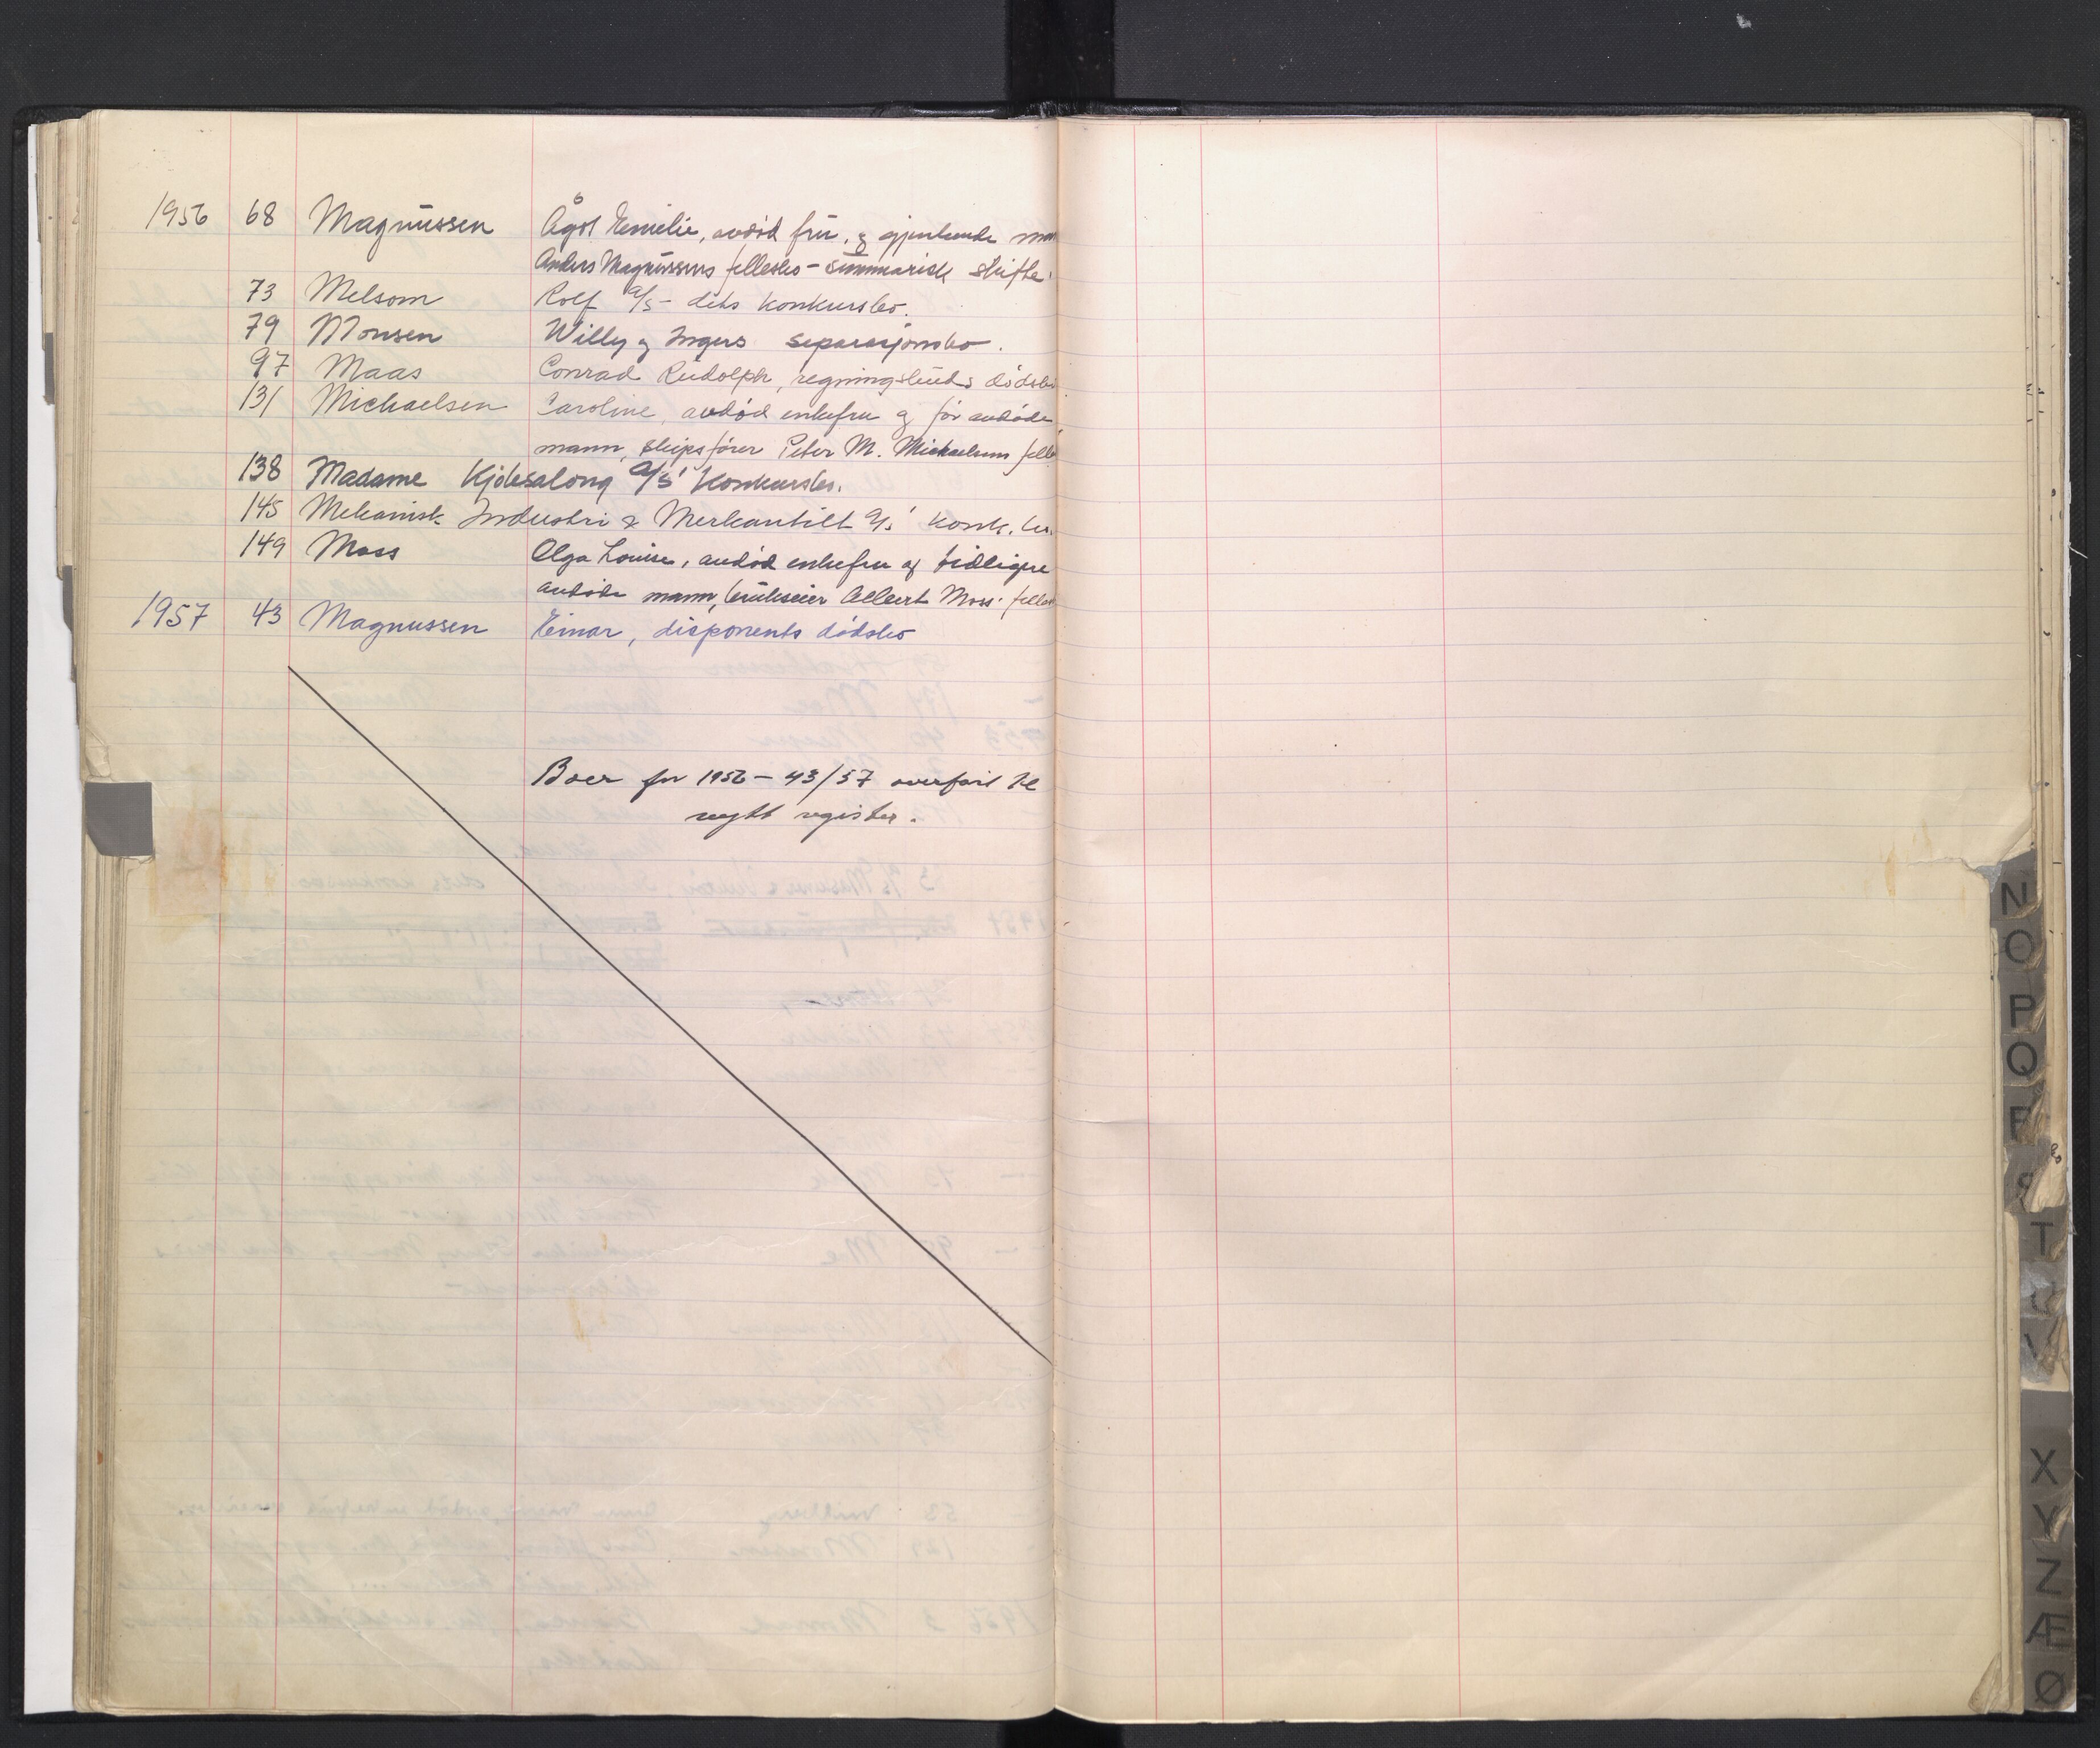 1956 68 Magnussen Ågot Emelie, avdød fru, og gjenlevende man
Anders Magnussens fellesbo - summarisk skifte.
73 Melsom Rolf A/S - dets konkursbo.
79 Monsen Willy og Ingers separasjonsbo.
97 Maas Conrad Rudolph, regningsbuds dødsbo
131 Michaelsen Caroline, avdød enkefru og før avdøde
mann, skipsfører Peter M. Michaelsens felle
138 Madame Kjolesalong A/S' Konkursbo.
145 Mekanisk Industri & Merkantilt A/S' konk. bo.
149 Moss Olga Louise, avdød enkefru og tidligere
avdøde mann, brukseier Albert Moss' felles
1957 43 Magnussen Einar, disponents dødsbo
Boer for 1956 - 43/57 overført til
nytt register.
N
O
P
Q
R
S
T
U
V
X
Y
Z
Æ
Ø